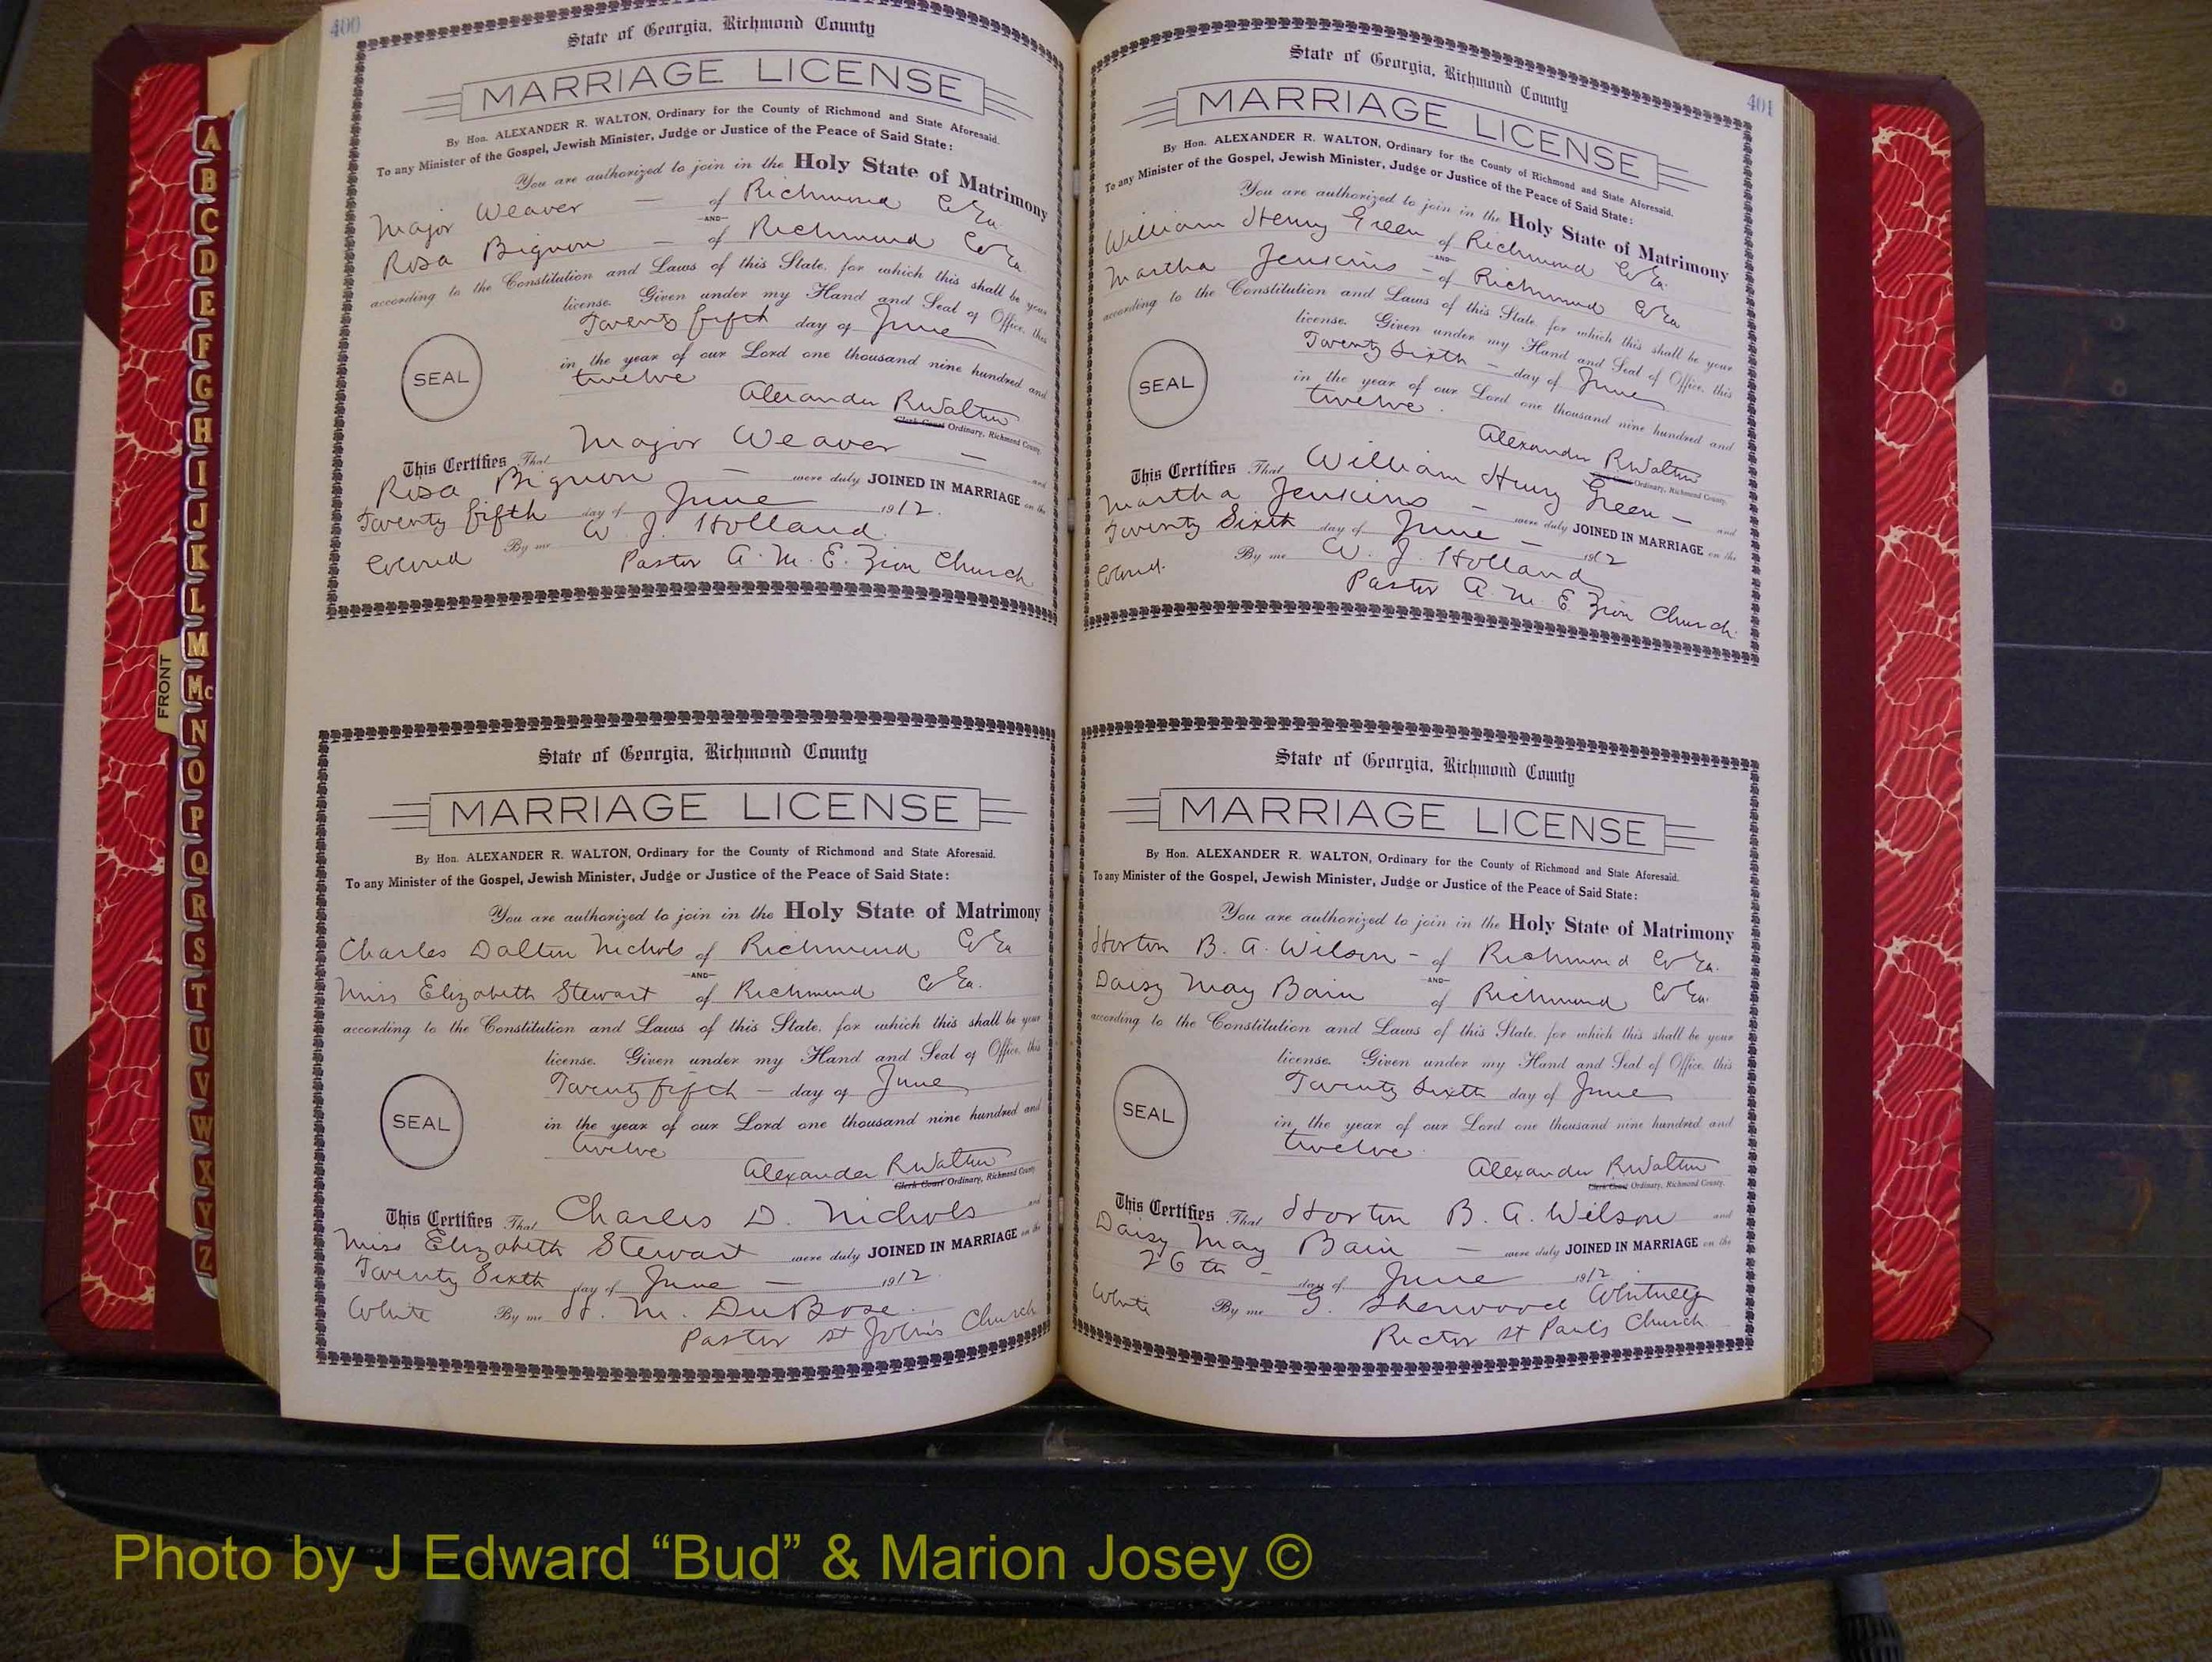 400
State of Georgia, Richmond County
MARRIAGE LICENSE
By Hon. ALEXANDER R. WALTON, Ordinary for the County of Richmond and State Aforesaid.
To any Minister of the Gospel, Jewish Minister, Judge or Justice of the Peace of Said State:
You are authorized to join in the Holy State of Matrimony
Major Weaver — of Richmond Co Ga.
—AND—
Rosa Bignon — of Richmond Co Ga
according to the Constitution and Laws of this State, for which this shall be your
license. Given under my Hand and Seal of Office, this
Twenty fifth day of June
in the year of our Lord one thousand nine hundred and
twelve
SEAL
Alexander R Walton
Clerk Court Ordinary, Richmond County
This Certifies That Major Weaver — and
Rosa Bignon — were duly JOINED IN MARRIAGE on the
Twenty fifth day of June 1912.
Colored By me W. J. Holland
Pastor A. M. E. Zion Church
State of Georgia, Richmond County
MARRIAGE LICENSE
By Hon. ALEXANDER R. WALTON, Ordinary for the County of Richmond and State Aforesaid.
To any Minister of the Gospel, Jewish Minister, Judge or Justice of the Peace of Said State:
You are authorized to join in the Holy State of Matrimony
Charles Dalton Nichols of Richmond Co Ga
—AND—
Miss Elizabeth Stewart of Richmond Co Ga.
according to the Constitution and Laws of this State, for which this shall be your
license. Given under my Hand and Seal of Office, this
Twenty fifth — day of June
in the year of our Lord one thousand nine hundred and
twelve
SEAL
Alexander R Walton
Clerk Court Ordinary, Richmond County
This Certifies That Charles D. Nichols and
Miss Elizabeth Stewart were duly JOINED IN MARRIAGE on the
Twenty Sixth day of June — 1912.
White By me H. M. DuBose.
Pastor St John's Church
401
State of Georgia, Richmond County
MARRIAGE LICENSE
By Hon. ALEXANDER R. WALTON, Ordinary for the County of Richmond and State Aforesaid.
To any Minister of the Gospel, Jewish Minister, Judge or Justice of the Peace of Said State:
You are authorized to join in the Holy State of Matrimony
William Henry Green of Richmond Co Ga.
—AND—
Martha Jenkins — of Richmond Co Ga
according to the Constitution and Laws of this State, for which this shall be your
license. Given under my Hand and Seal of Office, this
Twenty Sixth — day of June
in the year of our Lord one thousand nine hundred and
twelve.
SEAL
Alexander R Walton
Clerk Court Ordinary, Richmond County.
This Certifies That William Henry Green — and
Martha Jenkins — were duly JOINED IN MARRIAGE on the
Twenty Sixth day of June — 1912
Colored. By me W. J. Holland
Pastor A. M. E. Zion Church.
State of Georgia, Richmond County
MARRIAGE LICENSE
By Hon. ALEXANDER R. WALTON, Ordinary for the County of Richmond and State Aforesaid.
To any Minister of the Gospel, Jewish Minister, Judge or Justice of the Peace of Said State:
You are authorized to join in the Holy State of Matrimony
Horton B. A. Wilson — of Richmond Co Ga.
—AND—
Daisy May Bain of Richmond Co Ga.
according to the Constitution and Laws of this State, for which this shall be your
license. Given under my Hand and Seal of Office, this
Twenty Sixth day of June
in the year of our Lord one thousand nine hundred and
twelve.
SEAL
Alexander R Walton
Clerk Court Ordinary, Richmond County.
This Certifies That Horton B. A. Wilson and
Daisy May Bain — were duly JOINED IN MARRIAGE on the
26th — day of June 1912.
White By me G. Sherwood Whitney
Rector St Paul's Church.
FRONT
A
B
C
D
E
F
G
H
I
J
K
L
M
Mc
N
O
P
Q
R
S
T
U
V
W
X
Y
Z
Photo by J Edward “Bud” & Marion Josey ©